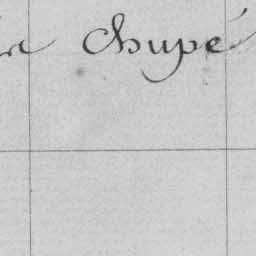 Chupé